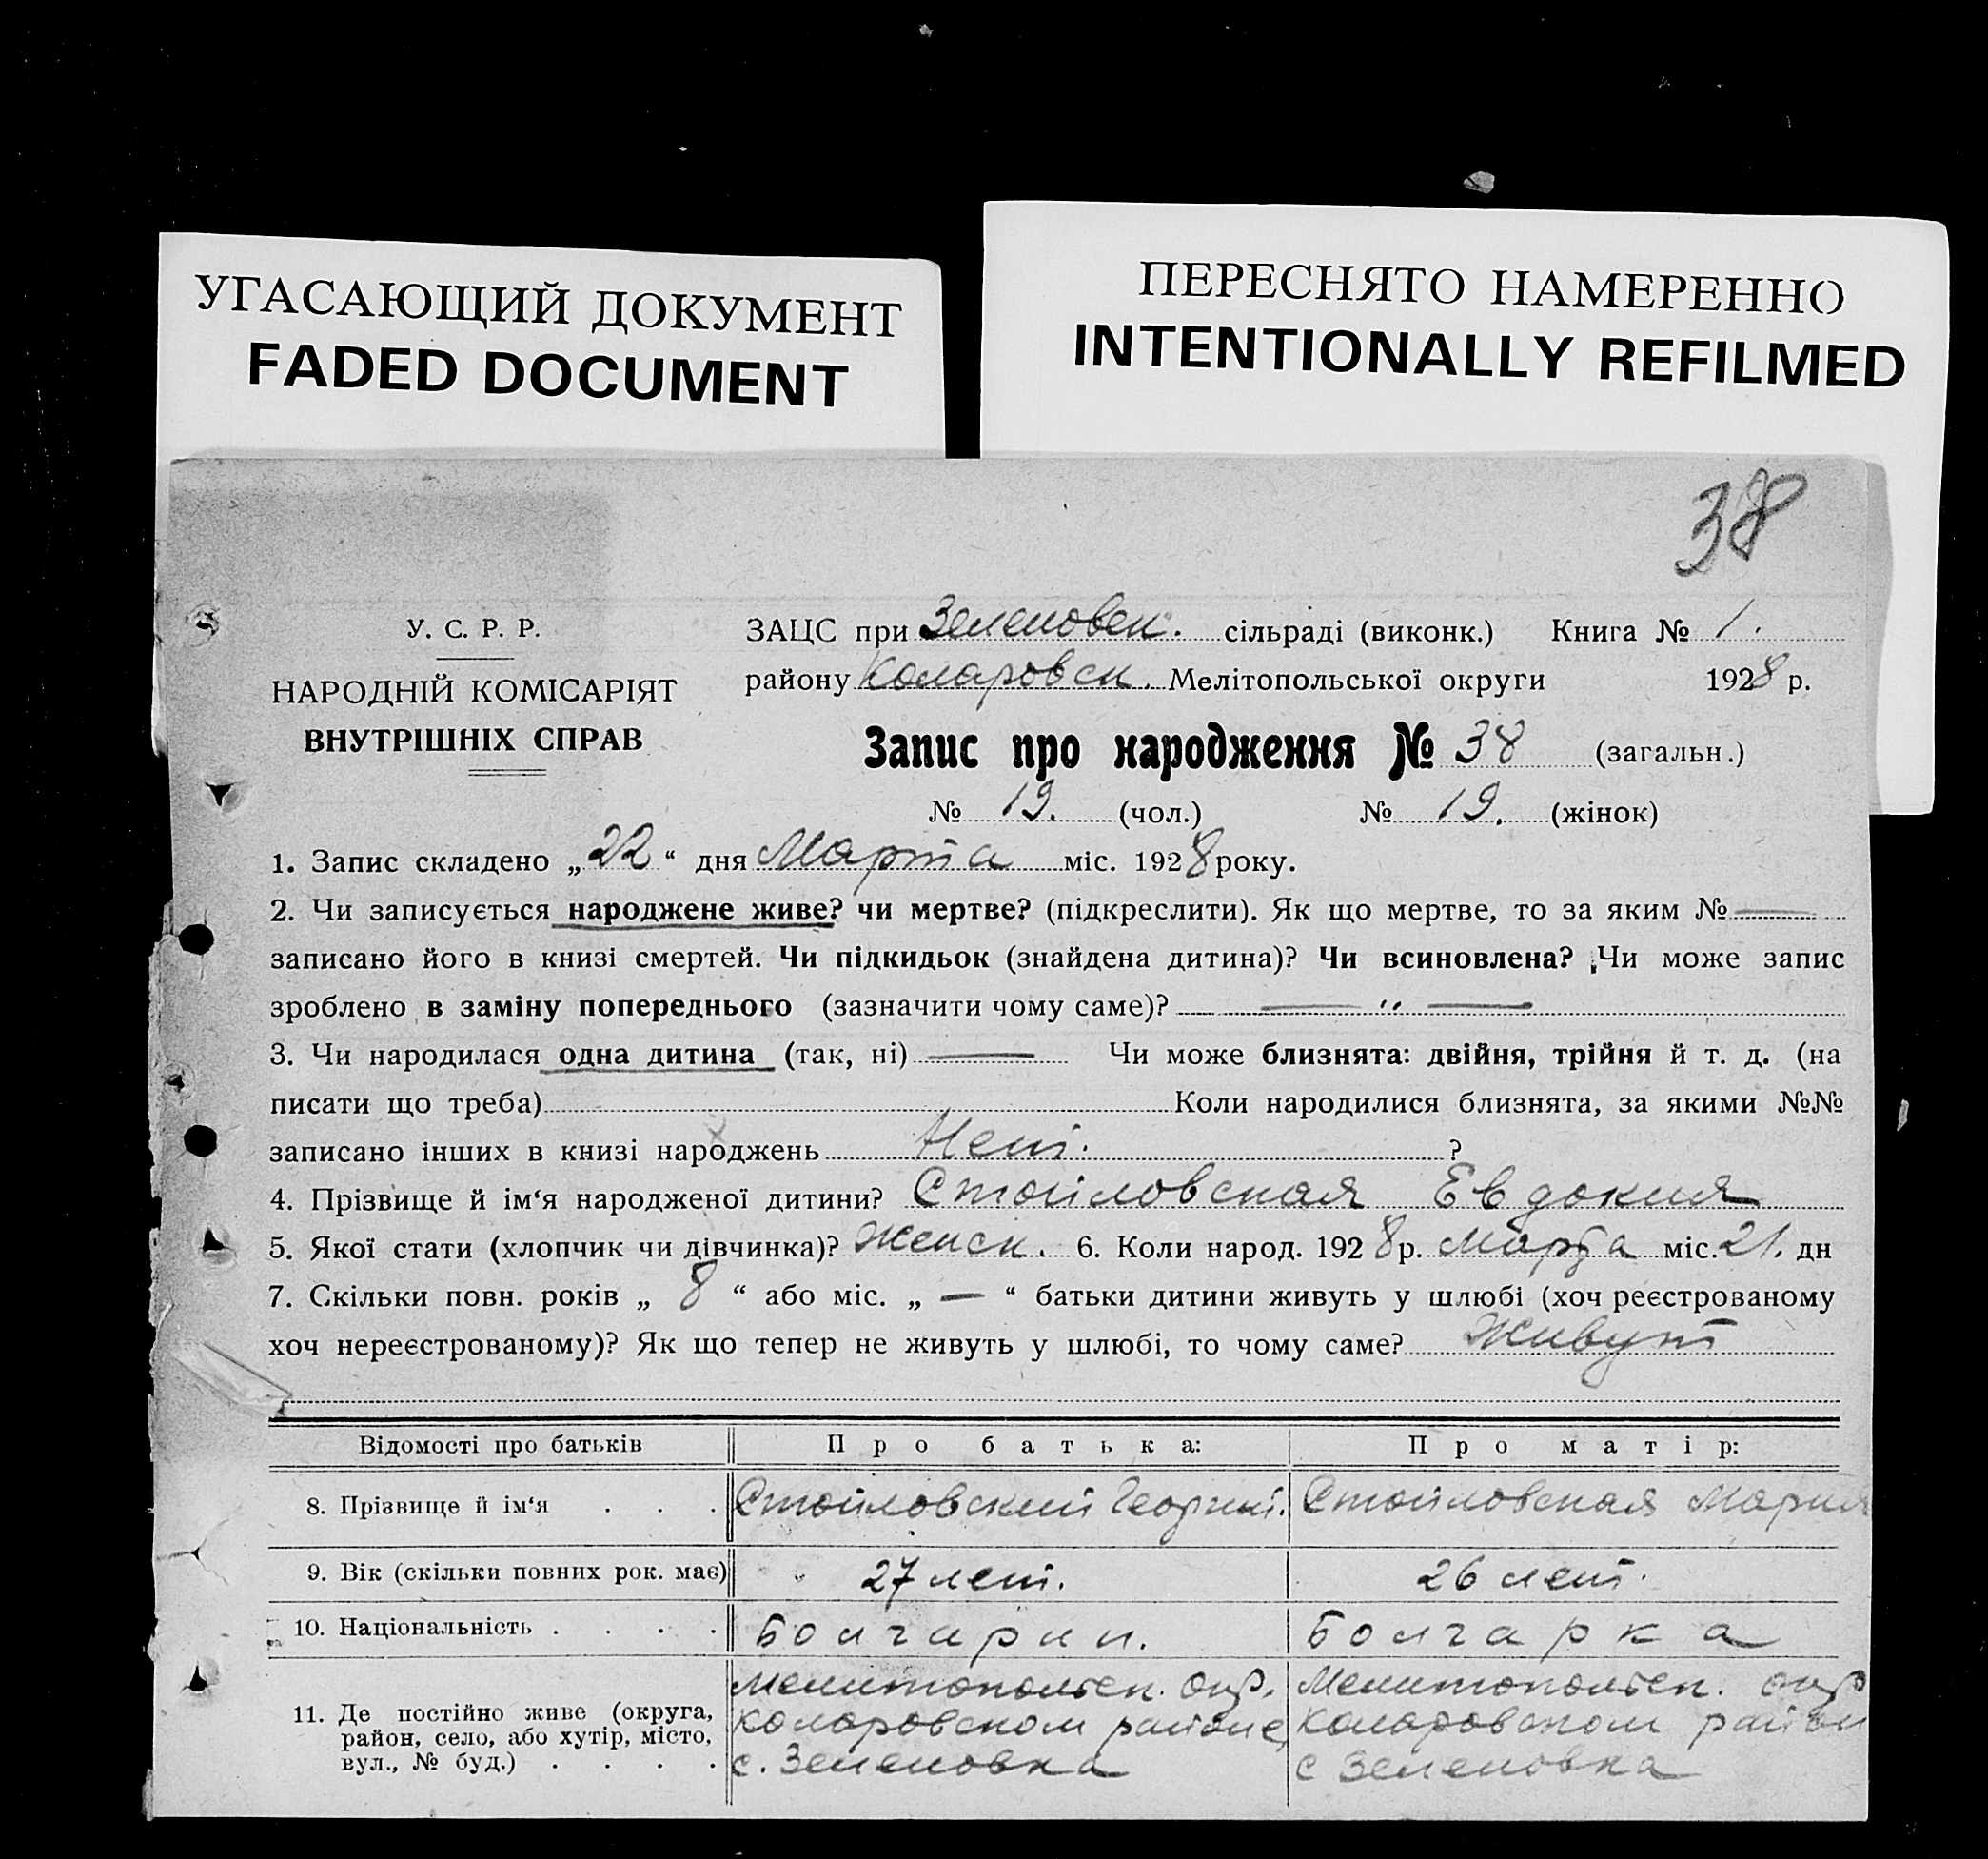 УГАСАЮЩИЙ ДОКУМЕНТ
FADED DOCUMENT
ПЕРЕСНЯТО НАМЕРЕННО
INTENTIONALLY REFILMED
38
У. С. Р. Р.
НАРОДНІЙ КОМІСАРІЯТ
ВНУТРІШНІХ СПРАВ
ЗАЦС при Зеленовск. сільраді (виконк.) Книга № 1.
району Коларовск. Мелітопольської округи 1928 р.
Запис про народження № 38 (загальн.)
№ 19. (чол.) № 19. (жінок)
1. Запис складено „22“ дня Марта міс. 1928 року.
2. Чи записується народжене живе? чи мертве? (підкреслити). Як що мертве, то за яким № —
записано його в книзі смертей. Чи підкидьок (знайдена дитина)? Чи всиновлена? Чи може запис
зроблено в заміну попереднього (зазначити чому саме)? — „ —
3. Чи народилася одна дитина (так, ні) — Чи може близнята: двійня, трійня й т. д. (на
писати що треба) Коли народилися близнята, за якими №№
записано інших в книзі народжень Нет. ?
4. Прізвище й ім‘я народженої дитини? Стойловская Евдокия
5. Якої стати (хлопчик чи дівчинка)? Женск. 6. Коли народ. 1928 р. Марта міс. 21. дн
7. Скільки повн. років „ 8 “ або міс. „ — “ батьки дитини живуть у шлюбі (хоч реєстрованому
хоч нереєстрованому)? Як що тепер не живуть у шлюбі, то чому саме? Живут
Відомості про батьків Про батька: Про матір:
8. Прізвище й ім‘я . . . Стойловский Георгий. Стойловская Мария
9. Вік (скільки повних рок. має) 27 лет. 26 лет.
10. Національність . . . . Болгарин. Болгарка
11. Де постійно живе (округа, Мелитопольск. окр. Мелитопольск. окр
район, село, або хутір, місто, Коларовском районе Коларовском район
вул., № буд.) . . . . с. Зеленовка с Зеленовка